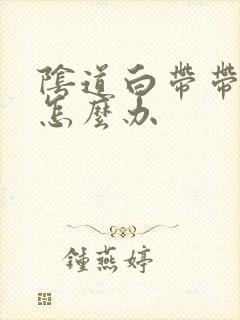 陰道白帶帶
怎麼办
鍾燕婷